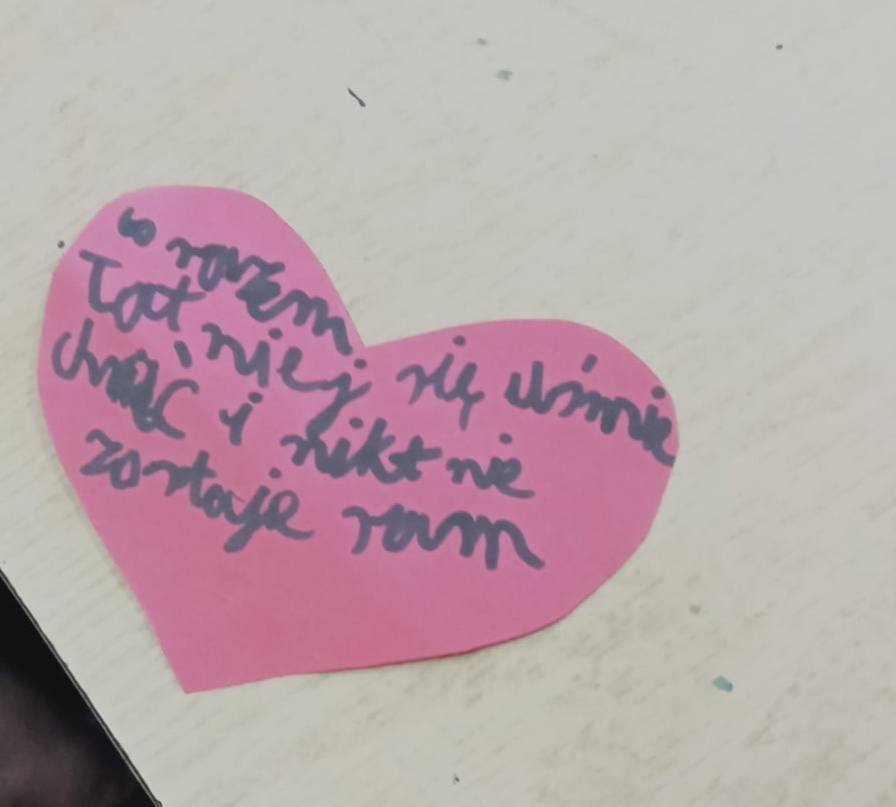 bo razem
łatwiej się uśmie
chnąć i nikt nie
zostaje sam